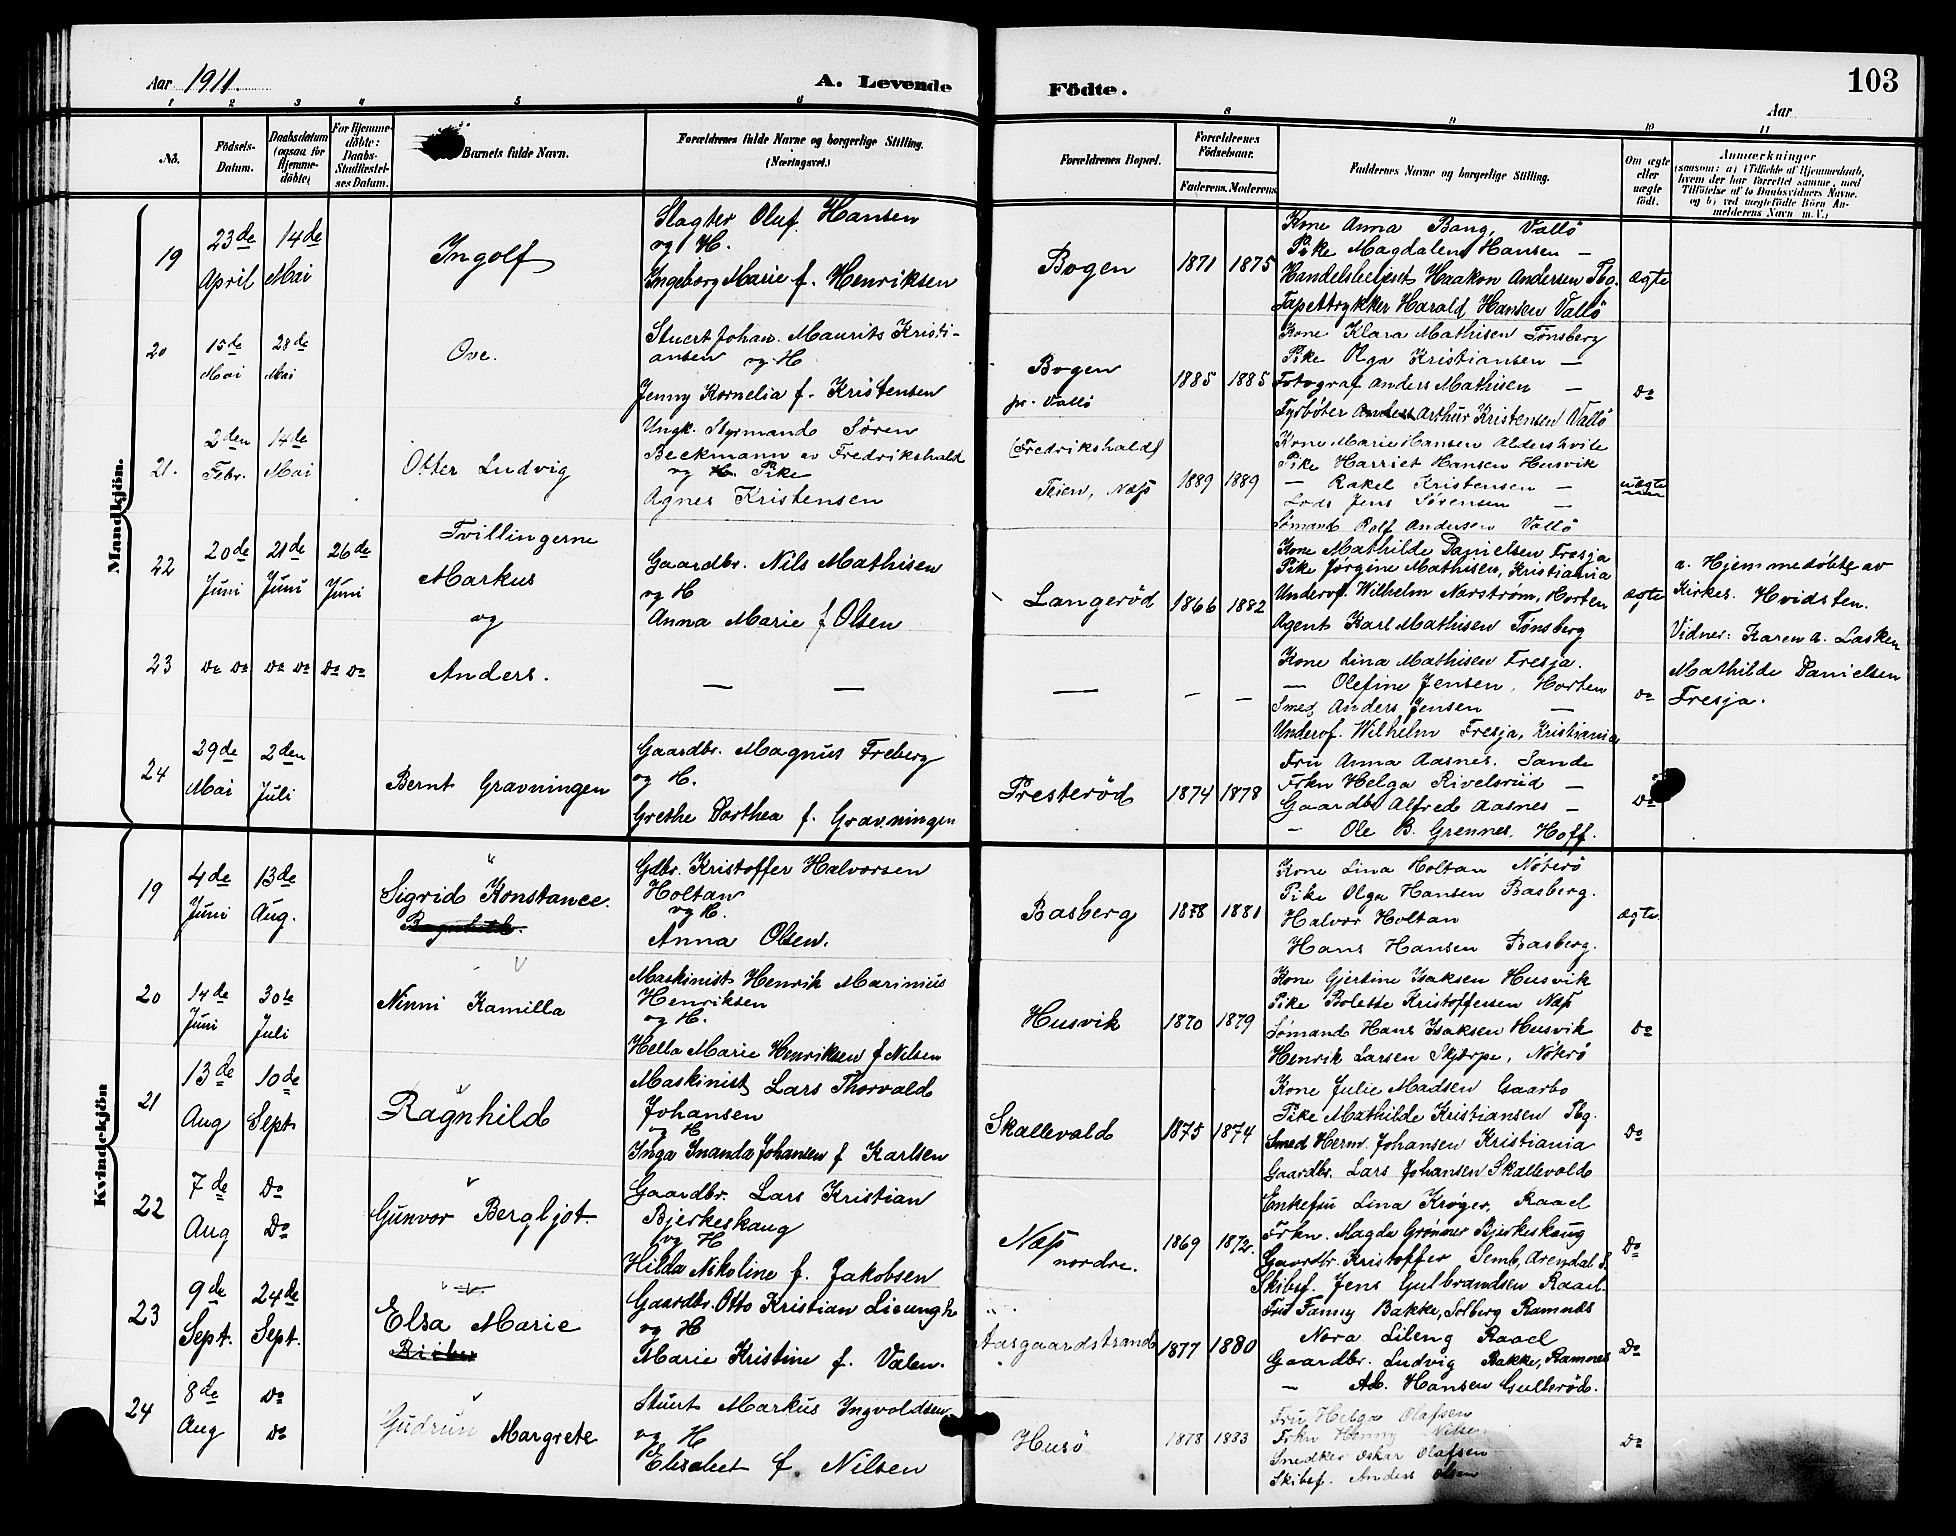 Aar 1911.
A. Levende Födte.
103
Aar
1 2 3 4 5 6 8 9 10 11
No.
Födsels-Datum.
Daabsdatum (ogsaa for Hjemmedöbte)
For Hjemmedöbte: Daabs-Stadfæstelses Datum.
Barnets fulde Navn.
Forældrenes fulde Navne og borgerlige Stilling. (Næringsvei.)
Forældrenes Bopæl.
Forældrenes Födselsaar.
Faderens. Moderens.
Faddernes Navne og borgerlige Stilling.
Om ægte eller uægte födt.
Anmærkninger
(saasom: a) i Tilfælde af Hjemmedaab, hvem der har forrettet samme, med Tilföielse af to Daabsvidners Navne. og b) ved uægtefödte Börn Anmelderens Navn m.V.)
Mandkjön.
19
23de April
14de Mai
Ingolf
Slagter Oluf Hansen
og H.
Ingeborg Marie f. Henriksen
Bogen
1871 1875
Kone Anna Bang, Vallö
Pike Magdalene Hansen —
Handelsbetjent Haakon Andersen Tbg.
Tapettrykker Harald Hansen Vallö
ægte
20
15de Mai
28de Mai
Ove.
Stuert Johan Maurits Kristi-
ansen og H
Jenny Kornelia f. Kristensen
Bogen
pr. Vallö
1885 1885
Kone Klara Mathisen Tønsberg
Pike Olga Kristiansen —
Fotograf Anders Mathisen —
Fyrbøter Arthur Kristensen Vallö
Do
21.
2den Febr.
14de Mai
Otter Ludvig
Ungk. Styrmand Sören
Beckmann av Fredrikshald
og H. Pike
Agnes Kristensen
(Fredrikshald)
Teien, Næss
1889 1889
Kone Marie Hansen Aldershvile
Pike Harriet Hansen Husvik
— Rakel Kristensen —
Lods Jens Sörensen —
Sømand Rolf Andersen Vallö
uægte
22
20de Juni
21de Juni
26de Juni
Tvillingerne
Markus
og
Gaardbr. Nils Mathisen
og H
Anna Marie f Olsen
Langeröd
1866 1882
Kone Mathilde Danielsen Fresja
Pike Jørgine Mathisen, Kristiania
Underof. Wilhelm Norstrøm, Horten
Agent Karl Mathisen Tønsberg
ægte
a. Hjemmedöbte av
Kirkes. Hvidsten.
Vidner: Karen A. Lasken
Mathilde Danielsen
Fresja.
23
Do Do
Do Do
Do Do
Anders.
— —
—
— —
Kone Lina Mathisen Fresja.
— Olefine Jensen, Horten
Smed Anders Jensen —
Underof. Wilhelm Fresja, Kristiania
Do
24
29de Mai
2den Juli
Bernt Gravningen
Gaardbr. Magnus Freberg
og H.
Grethe Dorthea f. Gravningen
Presteröd
1874 1878
Fru Anna Aasnes. Sande
Frkn Helga Rivelsrud —
Gaardbr Alfred Aasnes —
— Ole B. Grennes, Hoff.
Do
Kvindekjön
19
4de Juni
13de Aug.
Sigrid Konstance.
Gdbr. Kristoffer Halvorsen
Holtan
og H.
Anna Olsen.
Basberg
1878 1881
Kone Lina Holtan Nöterö
Pike Olga Hansen Basberg.
Halvor Holtan
Hans Hansen Basberg.
ægte
20
14de Juni
30te Juli
Ninni Kamilla
Maskinist Henrik Marinius
Henriksen
og H.
Hella Marie Henriksen f Nilsen
Husvik
1870 1879
Kone Gjertine Isaksen Husvik
Pike Bolette Kristoffersen Næss
Sömand Hans Isaksen Husvik
Henrik Larsen Skjærpe, Nöterö
Do
21
13de Aug
10de Sept
Ragnhild
Maskinist Lars Thorvald
Johansen
og H
Inga Inanda Johansen f Karlsen
Skallevald
1875 1874
Kone Julie Madsen Gaarbo
Pike Mathilde Kristiansen Tbg.
Smed Herm. Johansen Kristiania
Gaardbr. Lars Johansen Skallevald
Do
22
7de Aug
Do Do
Gunvor Bergljot.
Gaardbr. Lars Kristian
Bjerkeskaug
og H
Hilda Nikoline f. Jakobsen
Næss
nordre.
1869 1872.
Enkefru Lina Kröger, Raael
Frkn. Magda Grönner Bjerkeskaug
Gaardbr. Kristoffer Semb, Arendal S.
Skibsf. Jens Gulbrandsen Raael.
Do
23
9de Sept.
24de Sept.
Elsa Marie
Gaardbr. Otto Kristian Lieungh
og H
Marie Kristine f. Valen.
Aasgaardstrand
1877 1880
Fru Fanny Bakke, Solberg Ramnæs
Nora Lileng Raael
Gaardbr. Ludvig Bakke, Ramnes
— Ad. Hansen Gulleröd.
Do
24
8de Aug
Do Do
Gudrun Margrete
Stuert Markus Ingvoldsen
og H
Elisabet f. Nilsen
Husö
1878 1883
Fru Helga Olafsen
Frkn Henny Nilsen
Snedker Oskar Olafsen
Skibsf. Anders Olsen
Do